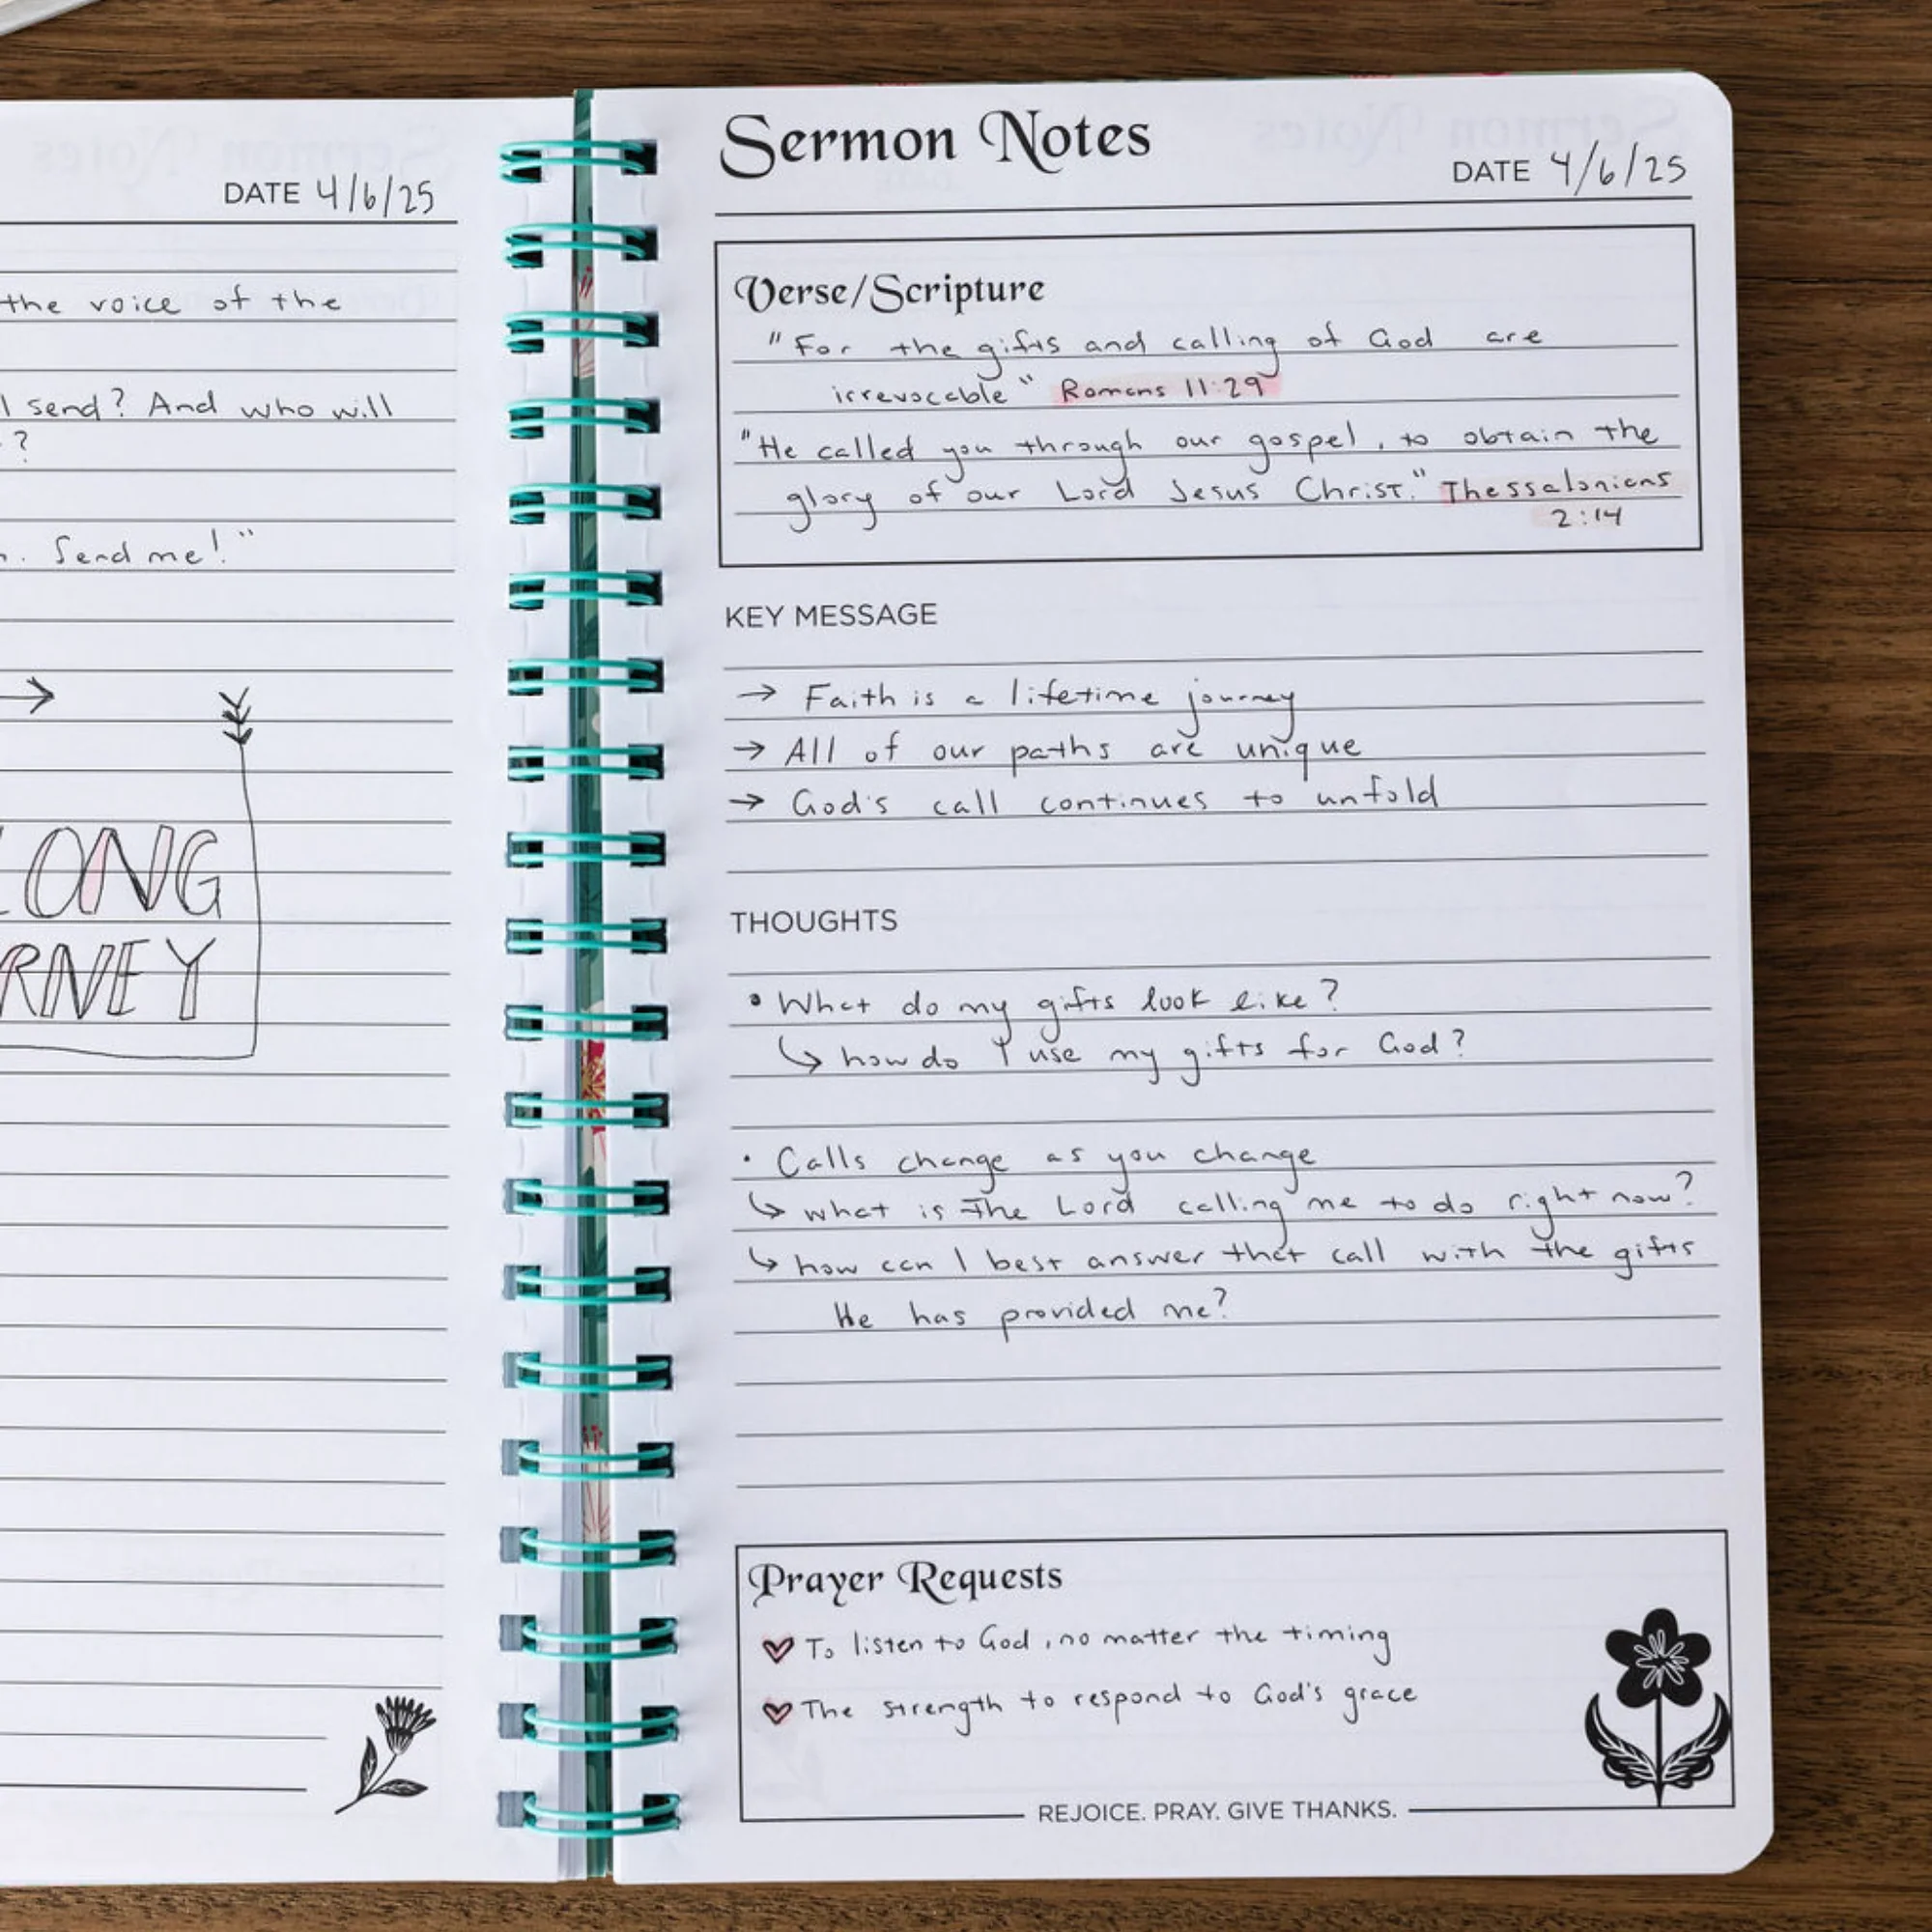 DATE 4/6/25
the voice of the
send? And who will
?
Send me!"
ONG
RNEY
Sermon Notes
DATE 4/6/25
Verse/Scripture
"For the gifts and calling of God are
irrevocable" Romans 11:29
"He called you through our gospel, to obtain the
glory of our Lord Jesus Christ." Thessalonians
2:14
KEY MESSAGE
→ Faith is a lifetime journey
→ All of our paths are unique
→ God's call continues to unfold
THOUGHTS
• What do my gifts look like?
↳ how do I use my gifts for God?
• Calls change as you change
↳ what is the Lord calling me to do right now?
↳ how can I best answer that call with the gifts
He has provided me?
Prayer Requests
♥ To listen to God, no matter the timing
♥ The strength to respond to God's grace
REJOICE. PRAY. GIVE THANKS.